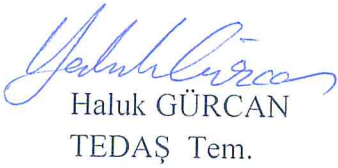 Haluk GÜRCAN
TEDAŞ Tem.